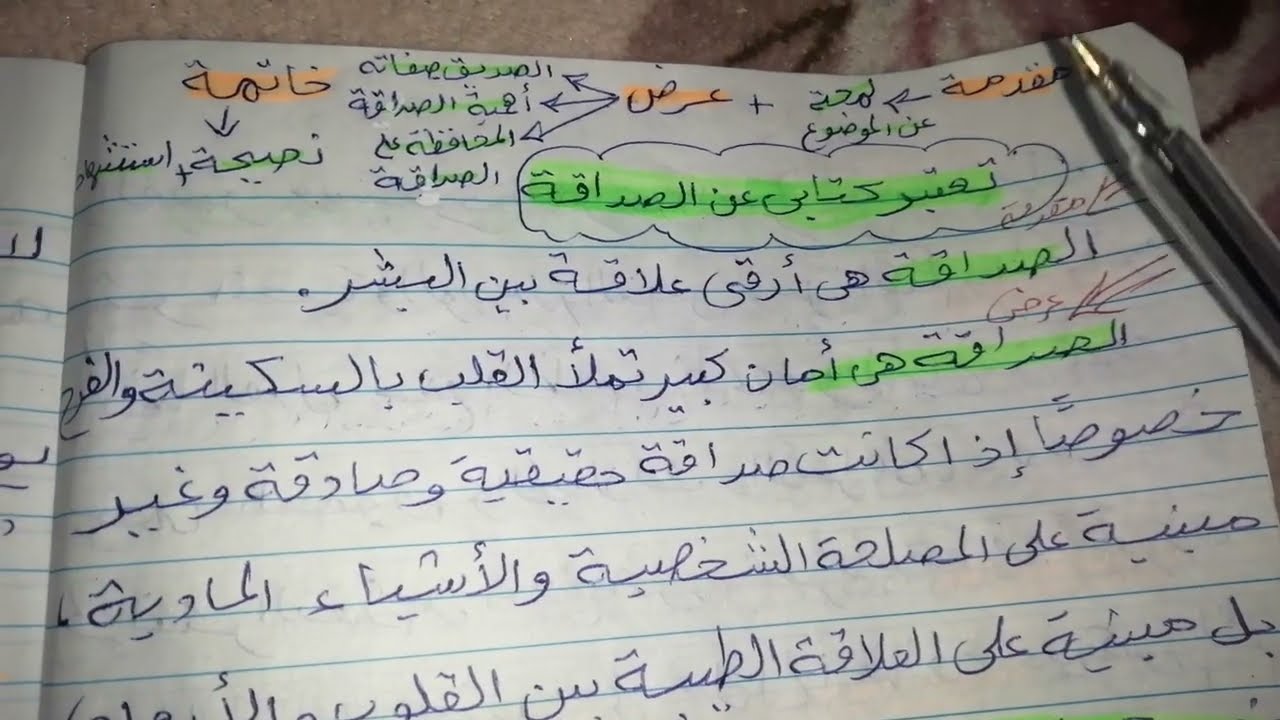 مقدمة ← لمحة عن الموضوع + عرض
الصديق صفاته
أهمية الصداقة
المحافظة على
الصداقة
خاتمة
↓
نصيحة + استشهاد
تعبير كتابي عن الصداقة
مقدمة
الصداقة هي أرقى علاقة بين البشر.
عرض
الصداقة هي أمان كبير تملأ القلب بالسكينة والفرح
خصوصًا إذا كانت صداقة حقيقية وصادقة وغير
مبنية على المصلحة الشخصية والأشياء المادية،
بل مبنية على العلاقة الطيبة بين القلوب والأرواح